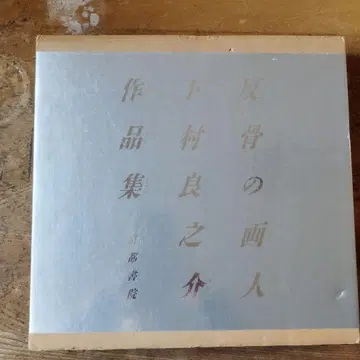 反骨の画人
下村良之介
作品集 京都書院